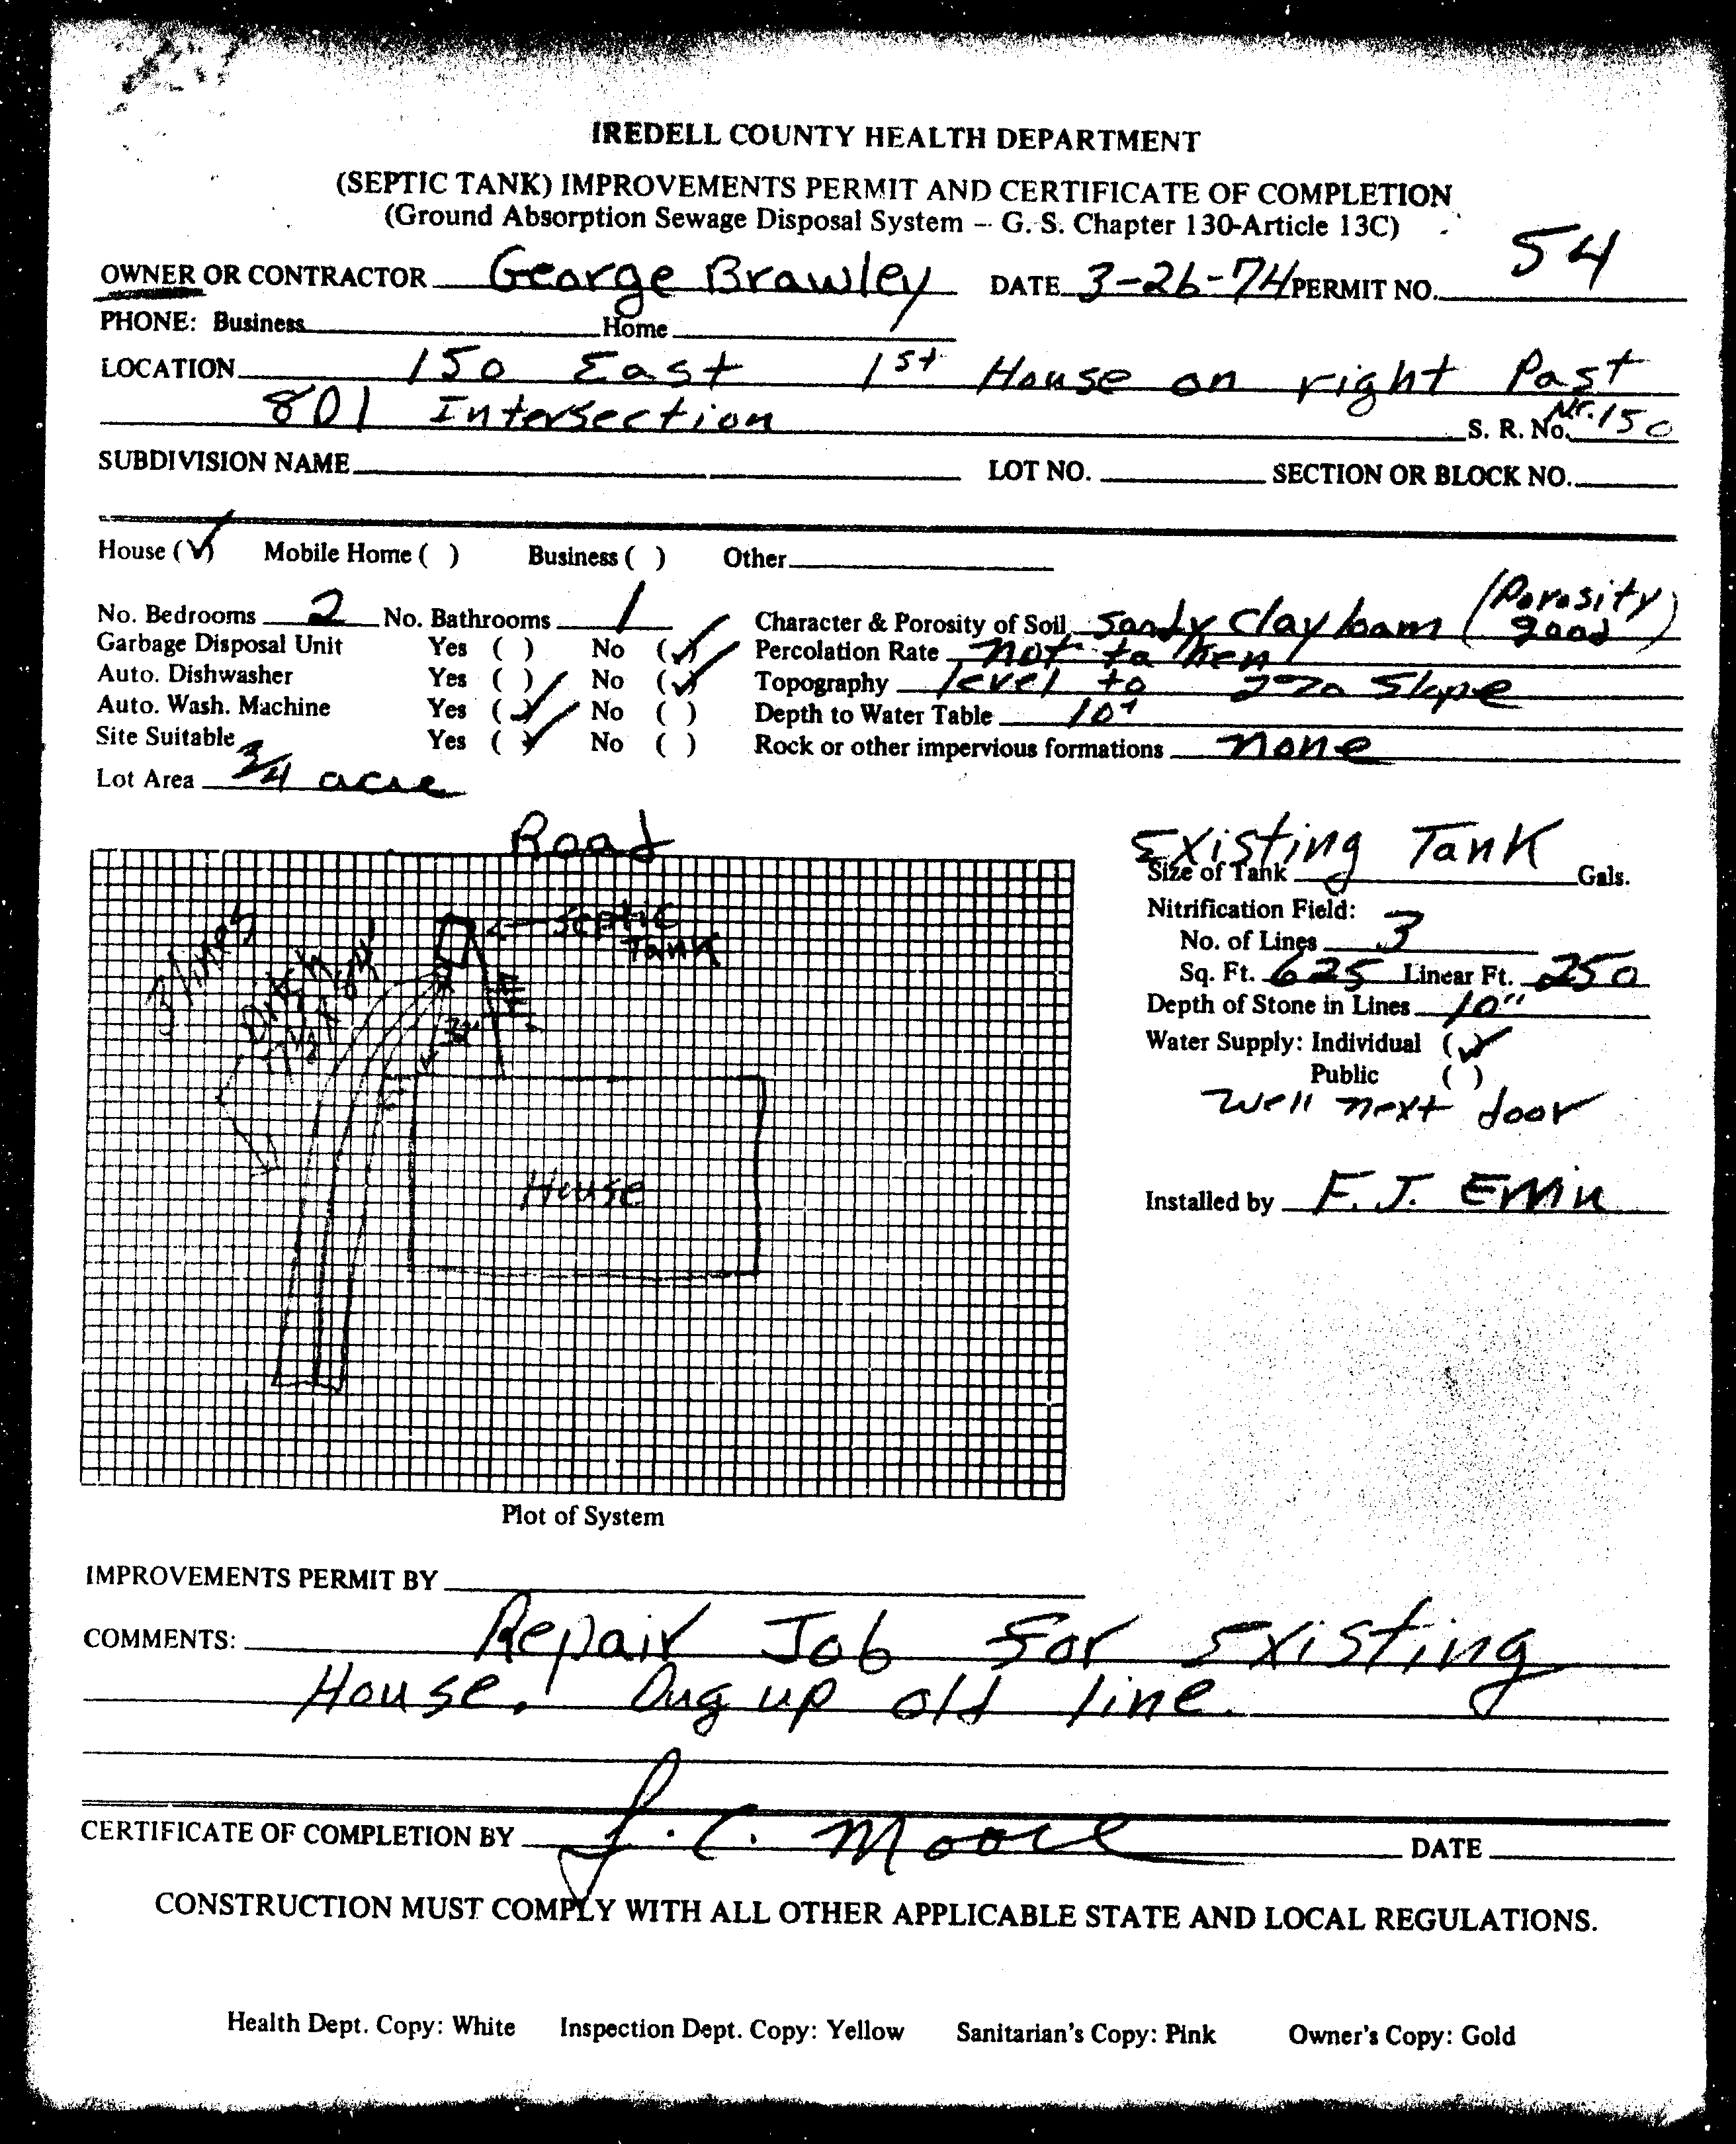 IREDELL COUNTY HEALTH DEPARTMENT
(SEPTIC TANK) IMPROVEMENTS PERMIT AND CERTIFICATE OF COMPLETION
(Ground Absorption Sewage Disposal System -- G. S. Chapter 130-Article 13C)
OWNER OR CONTRACTOR George Brawley DATE 3-26-74 PERMIT NO. 54
PHONE: Business Home
LOCATION 150 East 1st House on right Past
801 Intersection S. R. No. 150
SUBDIVISION NAME LOT NO. SECTION OR BLOCK NO.
House (✓) Mobile Home ( ) Business ( ) Other
No. Bedrooms 2 No. Bathrooms 1 Character & Porosity of Soil Sandy Clay loam (Porosity good)
Garbage Disposal Unit Yes ( ) No (✓) Percolation Rate not taken
Auto. Dishwasher Yes ( ) No (✓) Topography level to 2% Slope
Auto. Wash. Machine Yes (✓) No ( ) Depth to Water Table 10'
Site Suitable Yes (✓) No ( ) Rock or other impervious formations none
Lot Area 3/4 acre
Road
3 lines
Septic
Tank
House
Plot of System
Existing Tank
Size of Tank Gals.
Nitrification Field:
No. of Lines 3
Sq. Ft. 625 Linear Ft. 250
Depth of Stone in Lines 10"
Water Supply: Individual (✓)
Public ( )
Well next door
Installed by F. J. Ervin
IMPROVEMENTS PERMIT BY
COMMENTS: Repair Job for Existing
House. Dug up old line.
CERTIFICATE OF COMPLETION BY J. C. Moore DATE
CONSTRUCTION MUST COMPLY WITH ALL OTHER APPLICABLE STATE AND LOCAL REGULATIONS.
Health Dept. Copy: White Inspection Dept. Copy: Yellow Sanitarian's Copy: Pink Owner's Copy: Gold